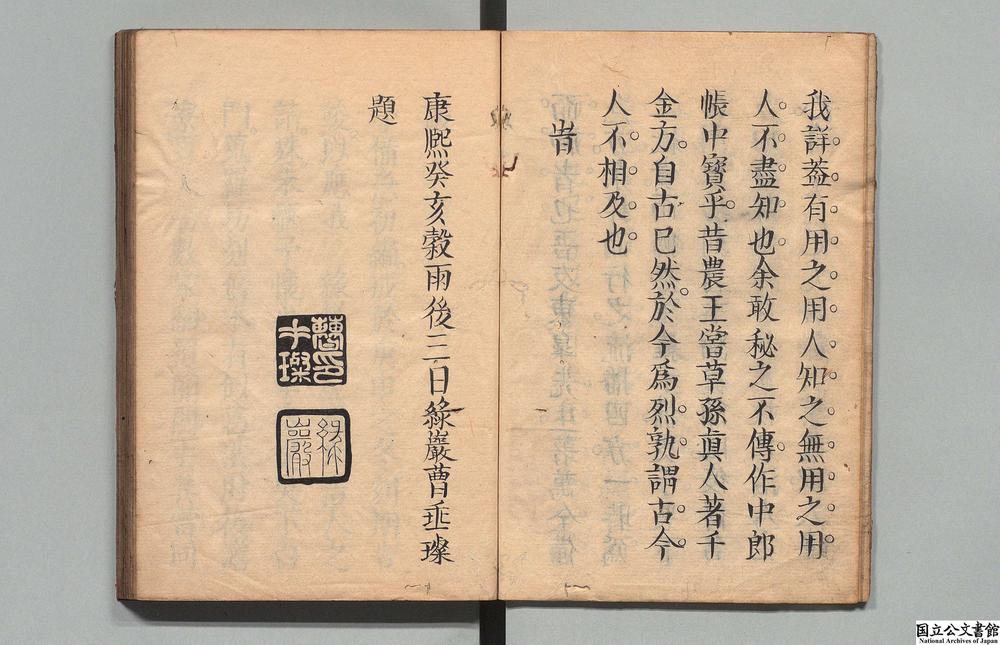 我詳葢有用之用人知之無用之用
人不盡知也余敢秘之不傳作中郎
帳中寶乎昔農王嘗草孫眞人著千
金方自古巳然於今爲烈孰謂古今
人不相及也
旹
康熙癸亥榖雨後三日綠巖曹垂璨
題
曹印垂璨
綠巖
国立公文書館
National Archives of Japan